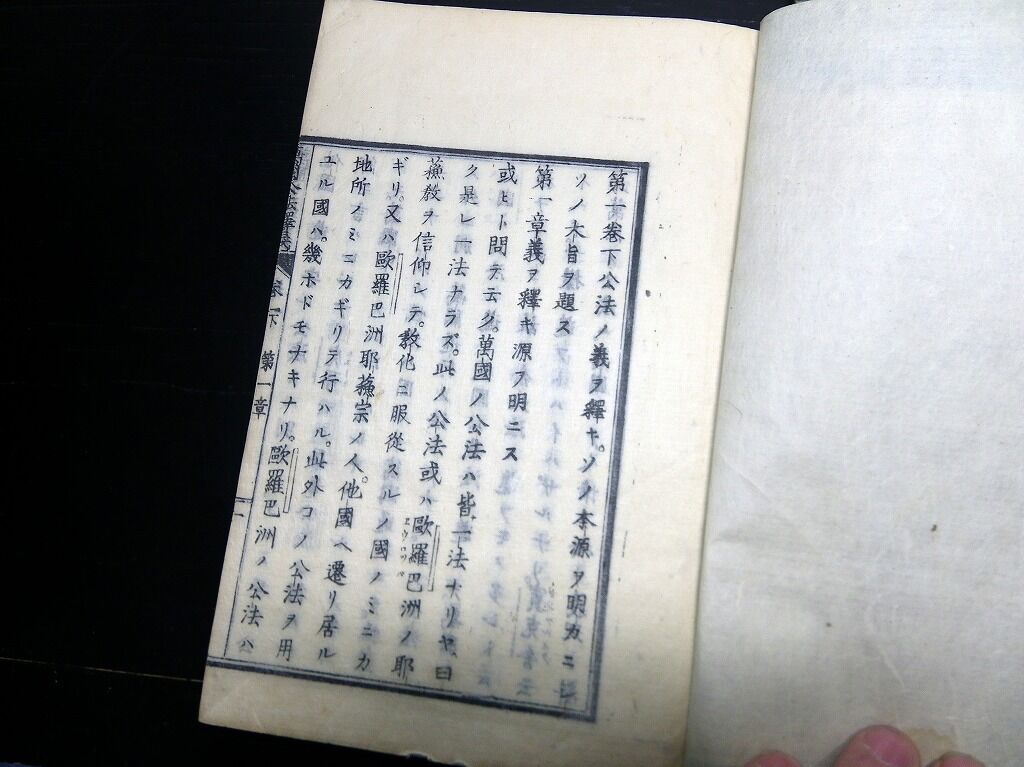 第一卷下公法ノ義ヲ釋キ。ソノ本源ヲ明カニシ
ソノ大旨ヲ題ス
第一章義ヲ釋キ源ヲ明ニス
或ヒト問テ云ク。萬國ノ公法ハ皆一法ナリヤ、曰
ク是レ一法ナラズ。此ノ公法或ハ歐羅巴洲ノ耶
エウロッパ
蘓教ヲ信仰シテ。敎化ニ服從スルノ國ノミニカ
ギリ。又ハ歐羅巴洲耶蘓宗ノ人。他國ヘ遷リ居ル
地所ノミニカギリテ行ハル。此外コノ公法ヲ用
ユル國ハ。幾ホドモナキナリ。歐羅巴洲ノ公法ハ
卷一下
第一章
一